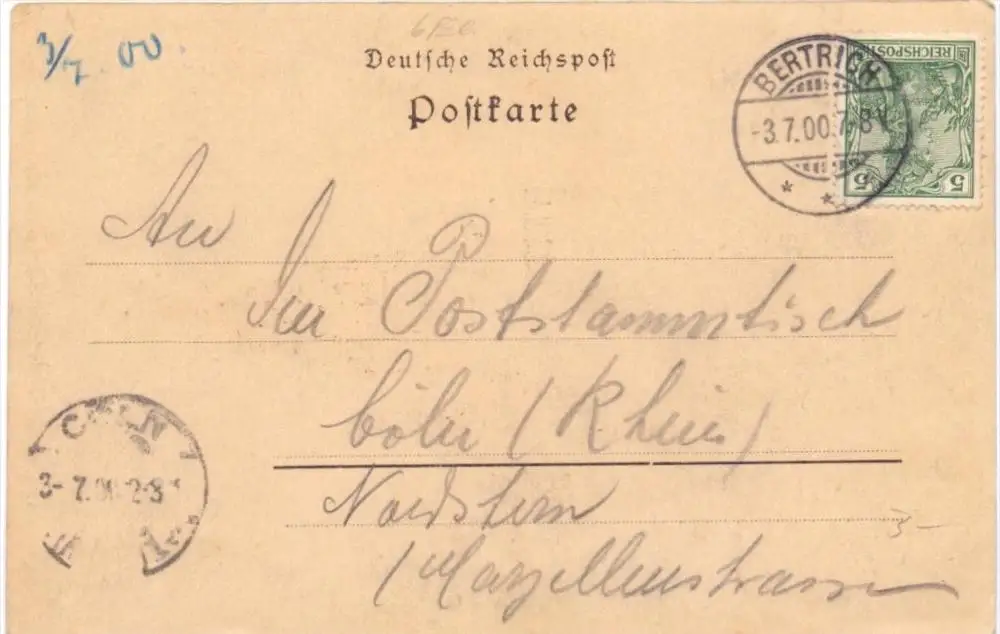 3/7 00.
Deutsche Reichspost
Postkarte
BERTRICH
-3.7.00.7-8V
REICHSPOST
5 5
An
Den Poststammtisch
Cöln (Rhein)
Nordstern
Marzellenstrasse
CÖLN
3-7.00.2-3
3-